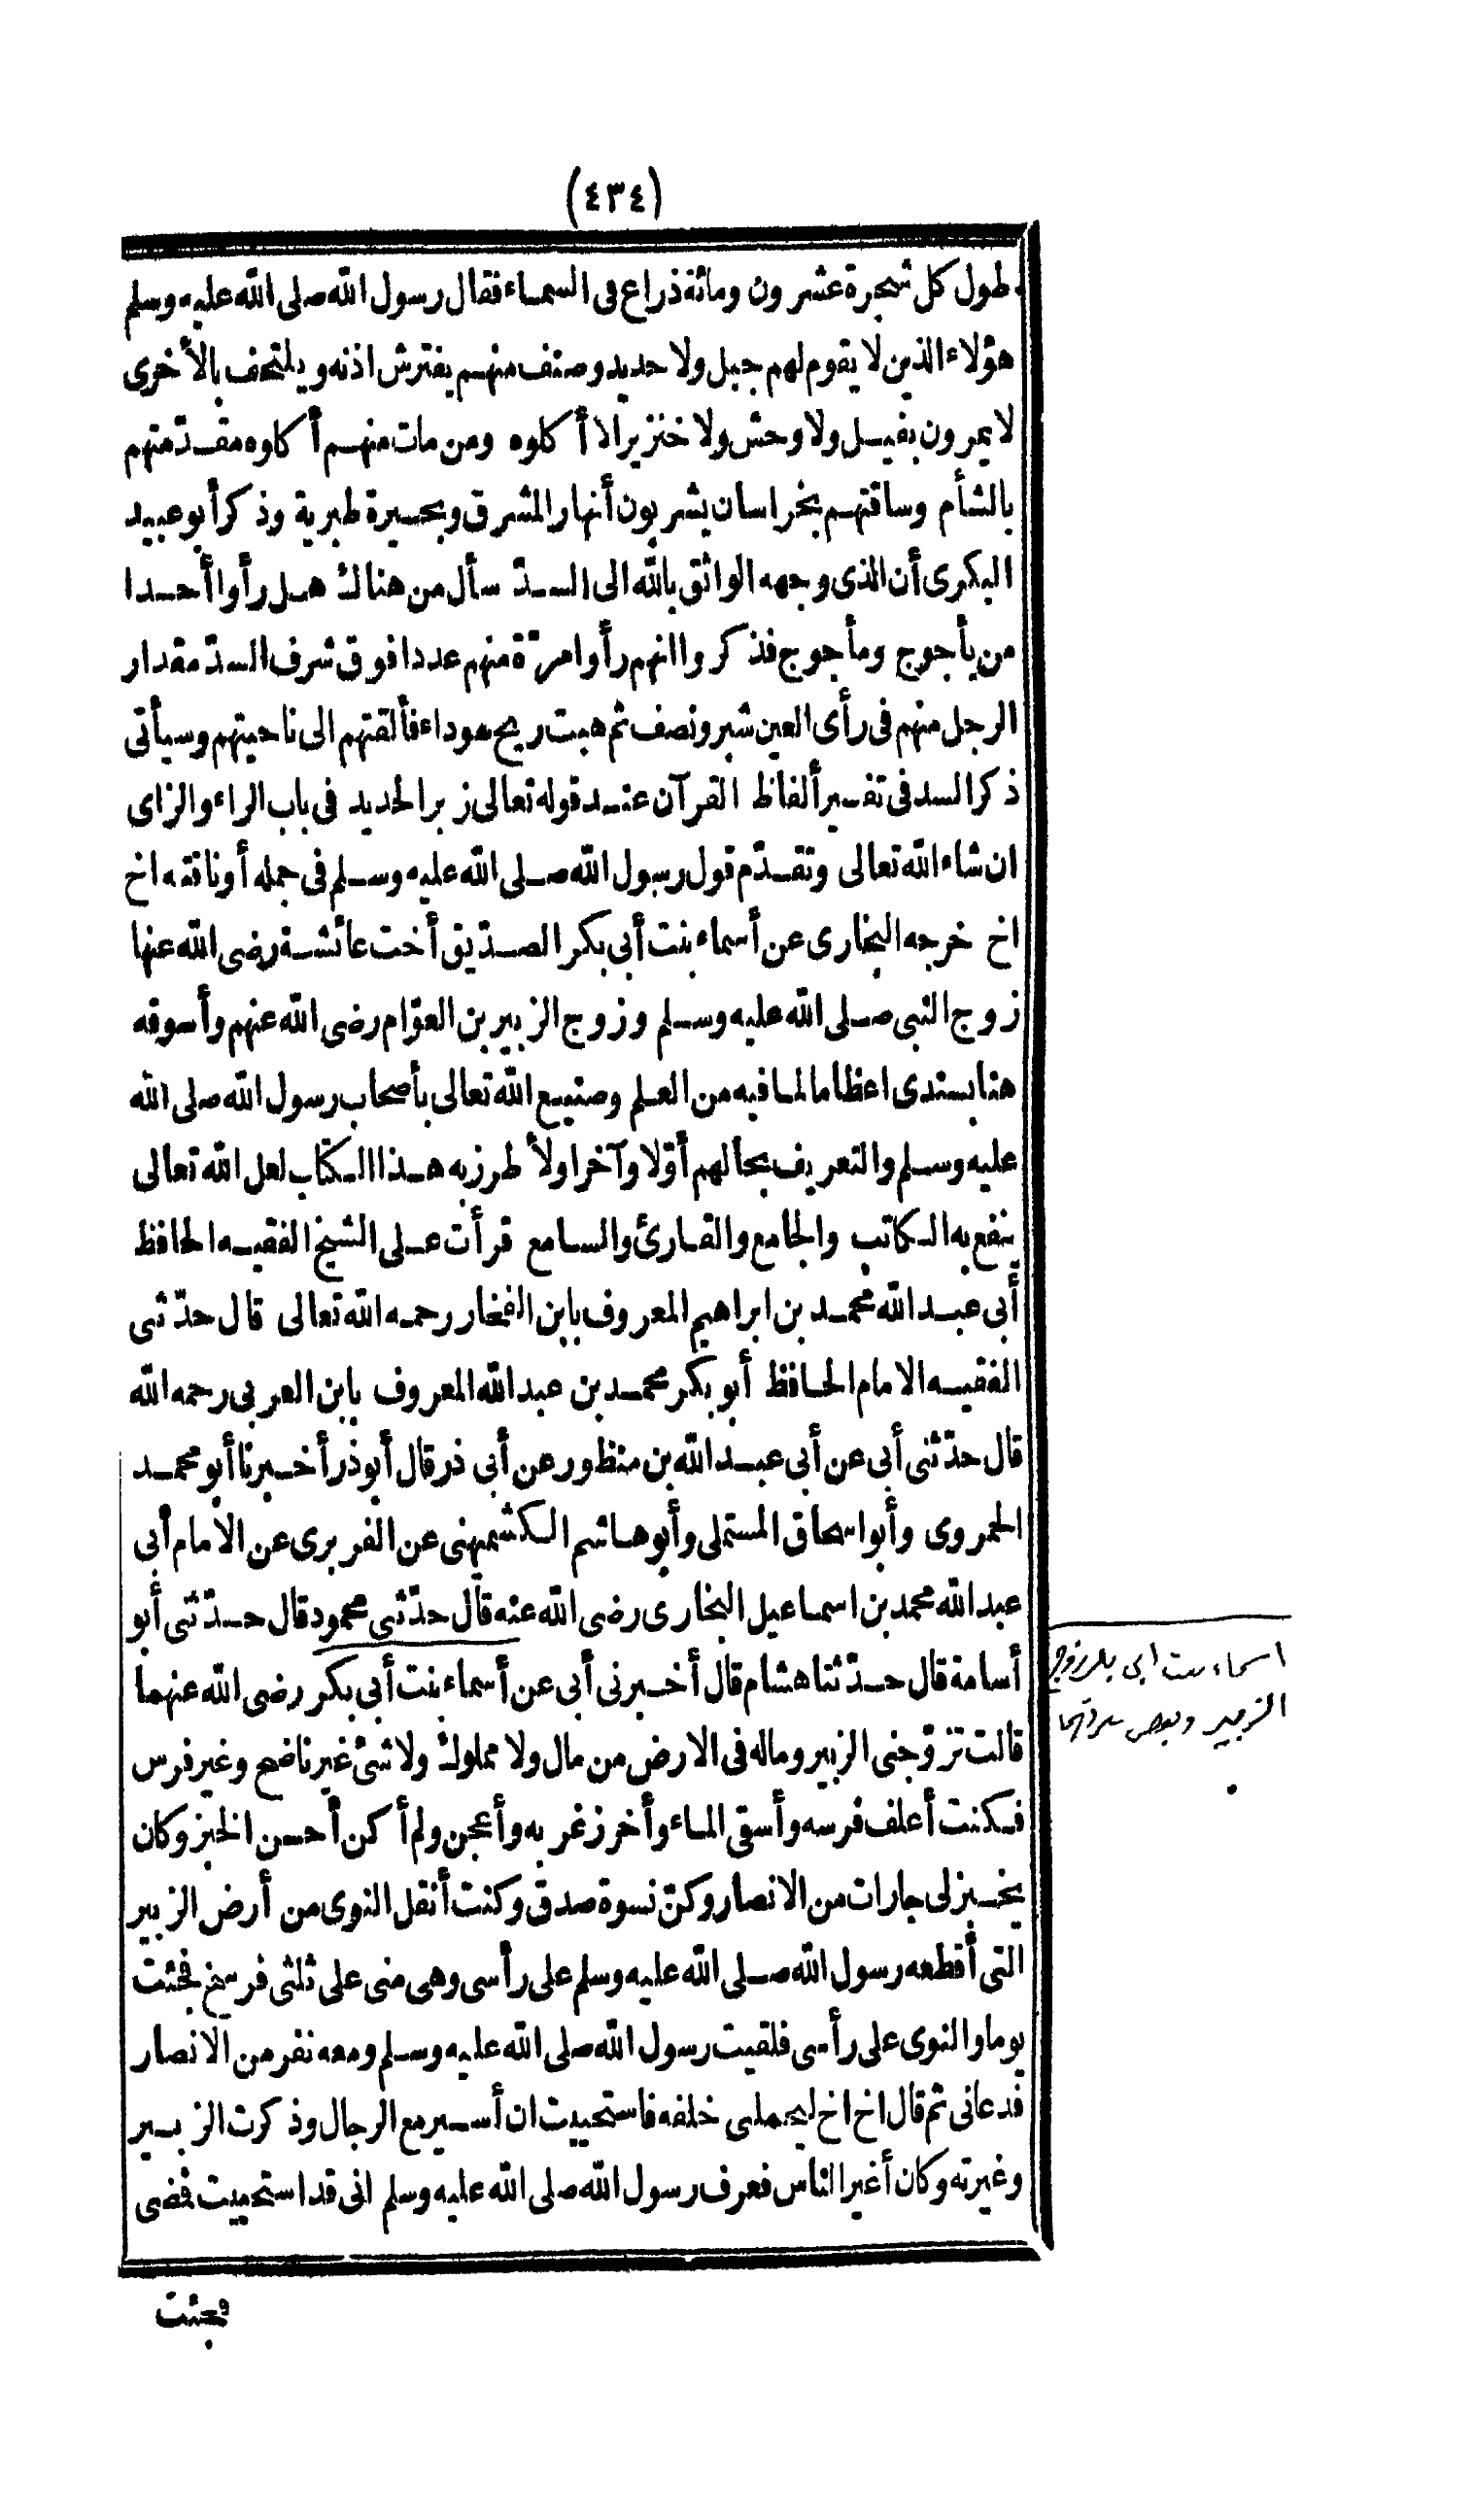 (٤٣٤)
طول كل شجرة عشرون ومائة ذراع فى السماء فقال رسول الله صلى الله عليه وسلم
هؤلاء الذين لا يقوم لهم جبل ولا حديد وصنف منهم يفترش اذنه ويلتحف بالأخرى
لا يمرون بفيل ولا وحش ولا خنزير الا أكلوه ومن مات منهم أكلوه مقدّمتهم
بالشأم وساقتهم بخراسان يشربون أنهار المشرق وبحيرة طبرية وذكر أبو عبيد
البكرى أن الذى وجهه الواثق بالله الى السدّ سأل من هناك هل رأوا أحدا
من يأجوج ومأجوج فذكروا انهم رأوا مرّة منهم عددا فوق شرف السدّ مقدار
الرجل منهم فى رأى العين شبر ونصف ثم هبت ريح سوداء فألقتهم الى ناحيتهم وسيأتى
ذكر السد فى تفسير ألفاظ القرآن عند قوله تعالى زبر الحديد فى باب الراء والزاى
ان شاء الله تعالى وتقدّم قول رسول الله صلى الله عليه وسلم فى جمله أو ناقته اخ
اخ خرجه البخارى عن أسماء بنت أبى بكر الصدّيق أخت عائشة رضى الله عنها
زوج النبى صلى الله عليه وسلم وزوج الزبير بن العوّام رضى الله عنهم وأسوقه
هنا بسندى اعظاما لما فيه من العلم وصنيع الله تعالى بأصحاب رسول الله صلى الله
عليه وسلم والتعريف بحالهم أوّلا وآخرا ولأطرز به هذا الكتاب لعل الله تعالى
ينفع به الكاتب والجامع والقارئ والسامع قرأت على الشيخ الفقيه الحافظ
أبى عبد الله محمد بن ابراهيم المعروف بابن الفخار رحمه الله تعالى قال حدّثنى
الفقيه الامام الحافظ أبو بكر محمد بن عبد الله المعروف بابن العربى رحمه الله
قال حدّثنى أبى عن أبى عبد الله بن منظور عن أبى ذر قال أبو ذر أخبرنا أبو محمد
الحمروى وأبو اسحاق المستملى وأبو هاشم الكشميهنى عن الفربرى عن الامام أبى
عبد الله محمد بن اسماعيل البخارى رضى الله عنه قال حدّثنى محمود قال حدّثنى أبو
أسامة قال حدّثنا هشام قال أخبرنى أبى عن أسماء بنت أبى بكر رضى الله عنهما
قالت تزوّجنى الزبير وماله فى الارض من مال ولا مملوك ولا شئ غير ناضح وغير فرس
فكنت أعلف فرسه وأسقى الماء وأخرز غربه وأعجن ولم أكن أحسن الخبز وكان
يخبز لى جارات من الانصار وكنّ نسوة صدق وكنت أنقل النوى من أرض الزبير
التى أقطعه رسول الله صلى الله عليه وسلم على رأسى وهى منى على ثلثى فرسخ فجئت
يوما والنوى على رأسى فلقيت رسول الله صلى الله عليه وسلم ومعه نفر من الانصار
فدعانى ثم قال اخ اخ ليحملنى خلفه فاستحييت ان أسير مع الرجال وذكرت الزبير
وغيرته وكان أغير الناس فعرف رسول الله صلى الله عليه وسلم انى قد استحييت فمضى
فجئت
اسماء بنت ابى بكر زوج
الزبير وبعض سيرتها